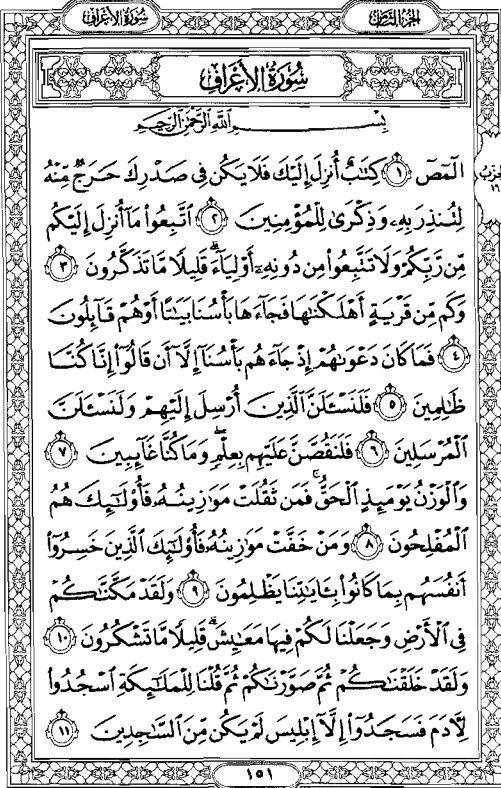 سُورَةُ الأَعْرَافِ
الجزء الثامن
سُورَةُ الأَعْرَافِ
بِسْمِ اللَّهِ الرَّحْمَٰنِ الرَّحِيمِ
الحزب ١٦
الٓمٓصٓ ١ كِتَٰبٌ أُنزِلَ إِلَيْكَ فَلَا يَكُن فِى صَدْرِكَ حَرَجٌ مِّنْهُ
لِتُنذِرَ بِهِۦ وَذِكْرَىٰ لِلْمُؤْمِنِينَ ٢ ٱتَّبِعُوا۟ مَآ أُنزِلَ إِلَيْكُم
مِّن رَّبِّكُمْ وَلَا تَتَّبِعُوا۟ مِن دُونِهِۦٓ أَوْلِيَآءَ ۗ قَلِيلًا مَّا تَذَكَّرُونَ ٣
وَكَم مِّن قَرْيَةٍ أَهْلَكْنَٰهَا فَجَآءَهَا بَأْسُنَا بَيَٰتًا أَوْ هُمْ قَآئِلُونَ
٤ فَمَا كَانَ دَعْوَىٰهُمْ إِذْ جَآءَهُم بَأْسُنَآ إِلَّآ أَن قَالُوٓا۟ إِنَّا كُنَّا
ظَٰلِمِينَ ٥ فَلَنَسْـَٔلَنَّ ٱلَّذِينَ أُرْسِلَ إِلَيْهِمْ وَلَنَسْـَٔلَنَّ
ٱلْمُرْسَلِينَ ٦ فَلَنَقُصَّنَّ عَلَيْهِم بِعِلْمٍ ۖ وَمَا كُنَّا غَآئِبِينَ ٧
وَٱلْوَزْنُ يَوْمَئِذٍ ٱلْحَقُّ ۚ فَمَن ثَقُلَتْ مَوَٰزِينُهُۥ فَأُو۟لَٰٓئِكَ هُمُ
ٱلْمُفْلِحُونَ ٨ وَمَنْ خَفَّتْ مَوَٰزِينُهُۥ فَأُو۟لَٰٓئِكَ ٱلَّذِينَ خَسِرُوٓا۟
أَنفُسَهُم بِمَا كَانُوا۟ بِـَٔايَٰتِنَا يَظْلِمُونَ ٩ وَلَقَدْ مَكَّنَّٰكُمْ
فِى ٱلْأَرْضِ وَجَعَلْنَا لَكُمْ فِيهَا مَعَٰيِشَ ۗ قَلِيلًا مَّا تَشْكُرُونَ ١٠
وَلَقَدْ خَلَقْنَٰكُمْ ثُمَّ صَوَّرْنَٰكُمْ ثُمَّ قُلْنَا لِلْمَلَٰٓئِكَةِ ٱسْجُدُوا۟
لِـَٔادَمَ فَسَجَدُوٓا۟ إِلَّآ إِبْلِيسَ لَمْ يَكُن مِّنَ ٱلسَّٰجِدِينَ ١١
١٥١